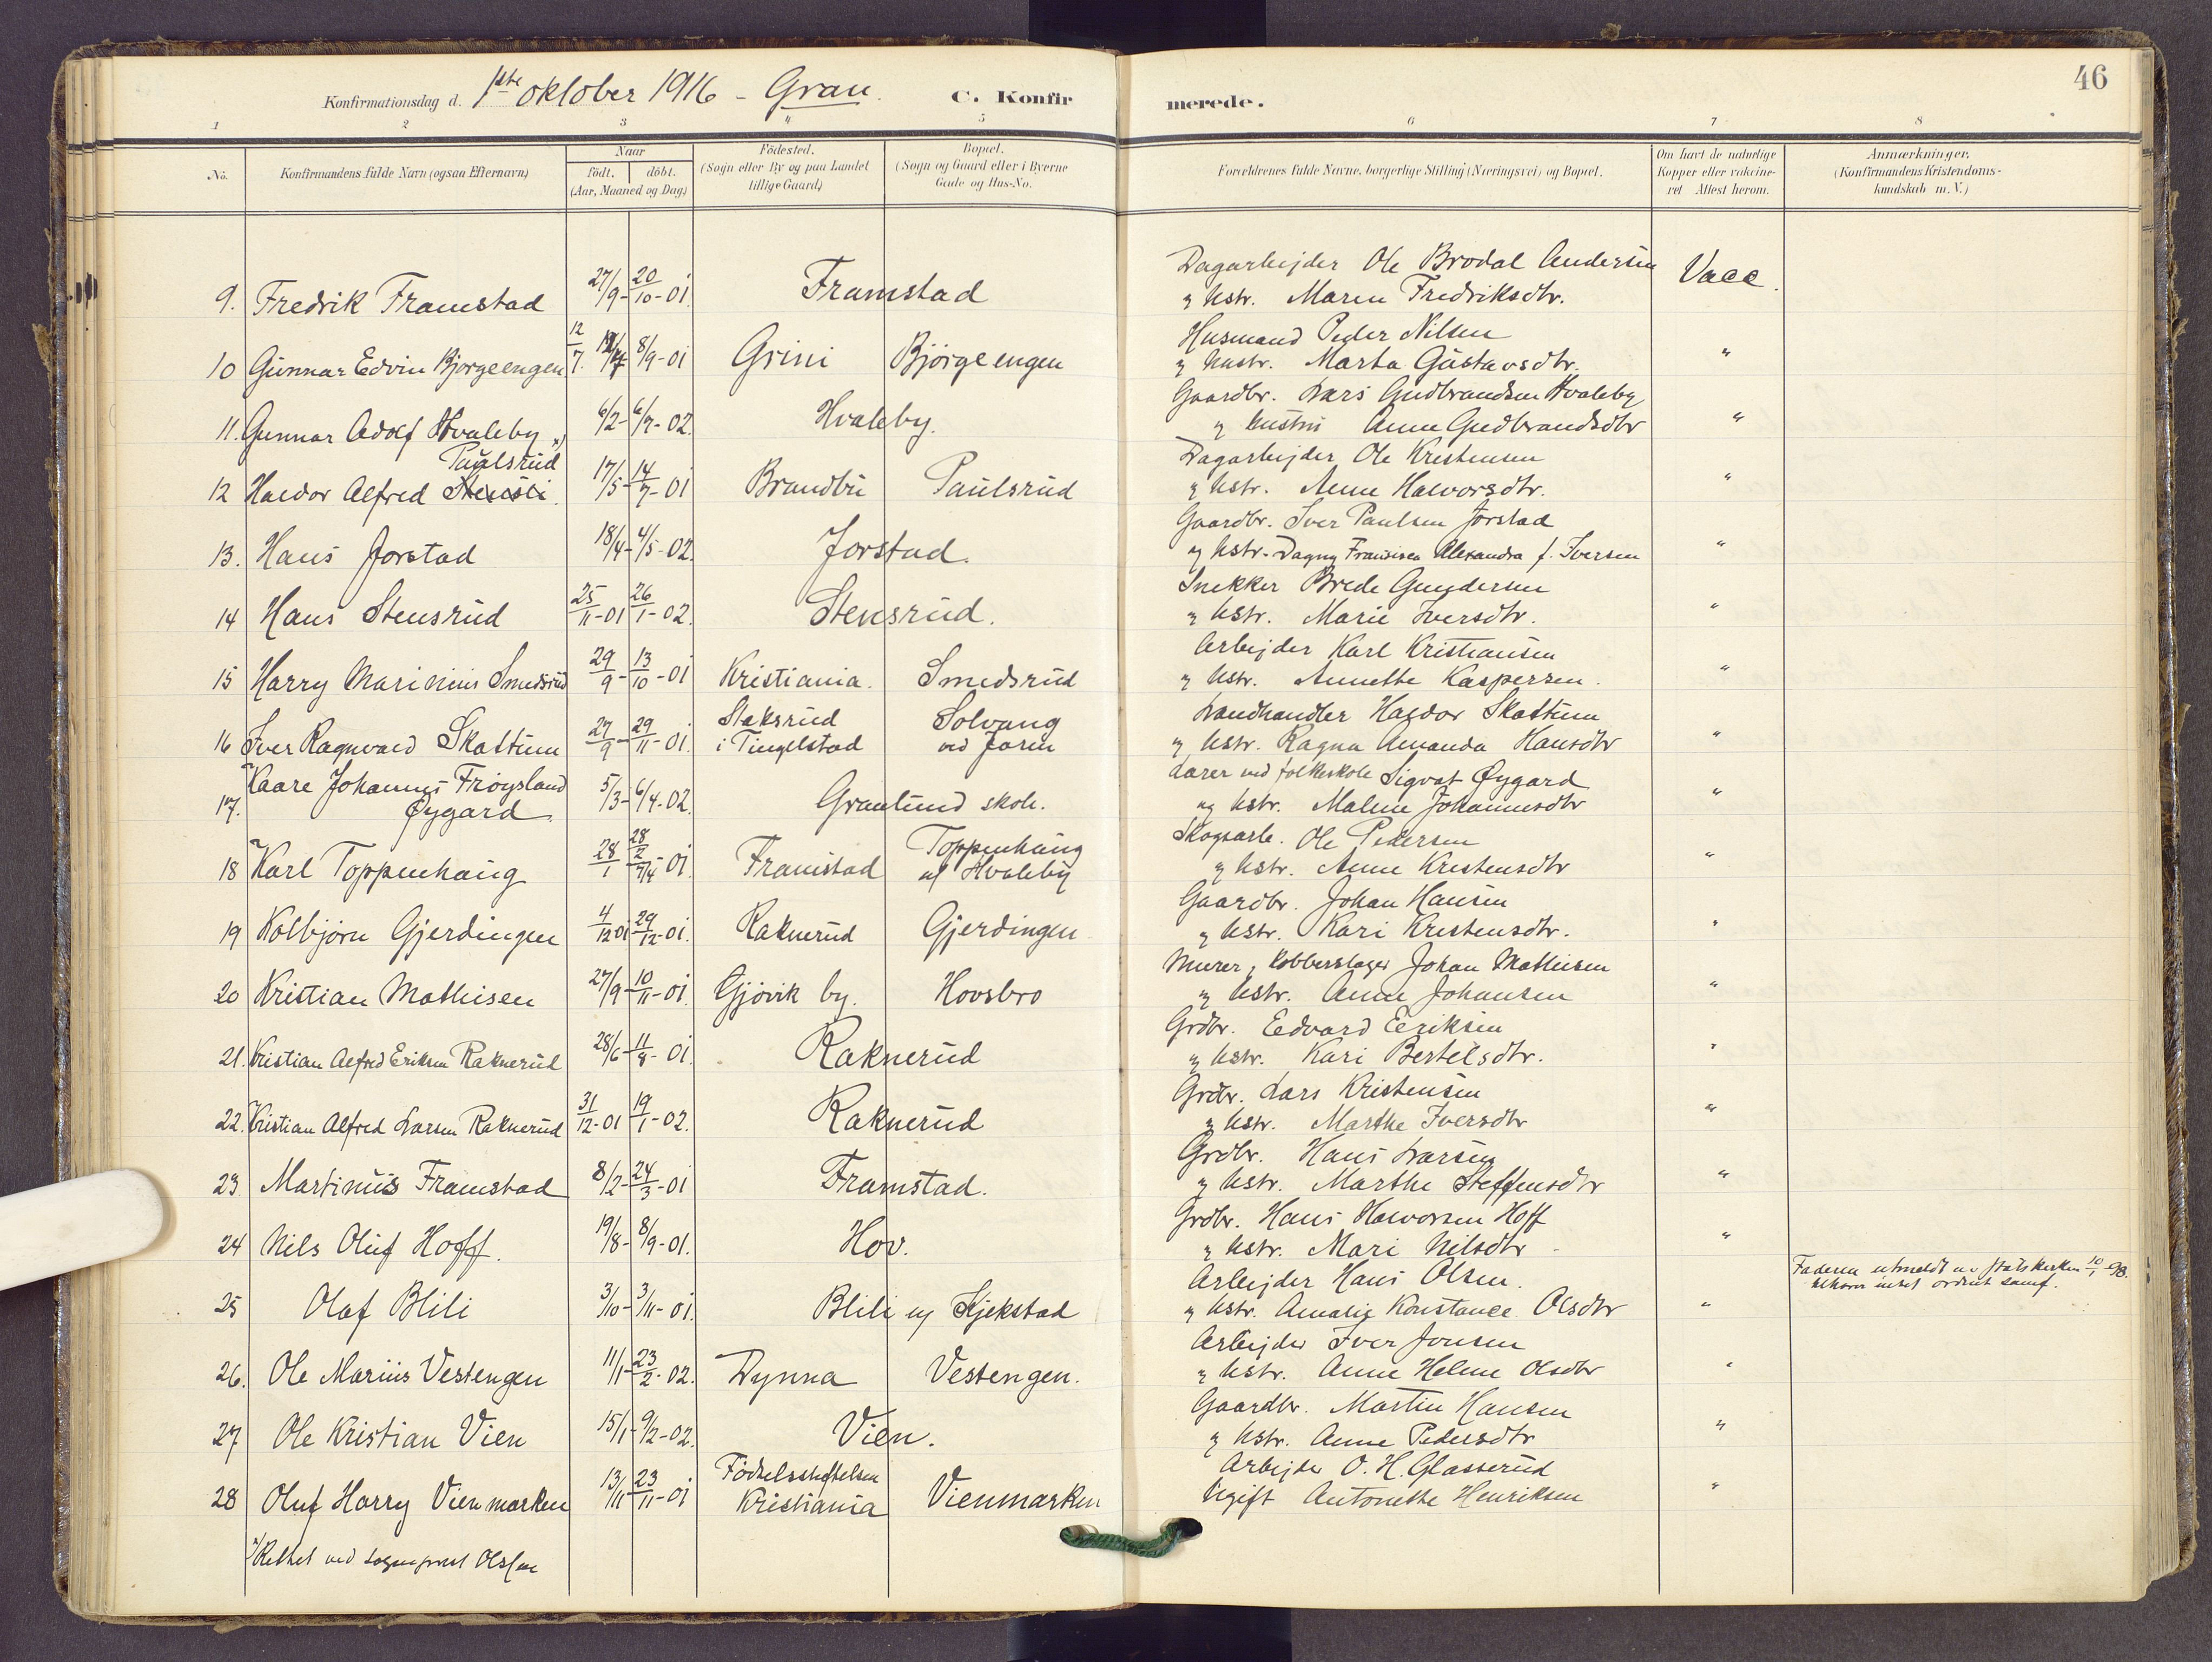 46
Konfirmationsdag d. 1ste oktober 1916 - Gran. C. Konfirmerede.
1 2 3 4 5 6 7 8
No. Konfirmandens fulde Navn (ogsaa Efternavn) Naar födt. döbt. (Aar, Maaned og Dag) Födested. (Sogn eller By og paa Landet tillige Gaard) Bopæl. (Sogn og Gaard eller i Byerne Gade og Hus-No. Forældrenes fulde Navne, borgerlige Stilling (Næringsvei) og Bopæl. Om havt de naturlige Kopper eller vakcineret Attest herom. Anmærkninger. (Konfirmandens Kristendomskundskab m. V.)
Dagarbejder Ole Brodal Andersen
9. Fredrik Framstad 27/9 - 20/10 - 01. Framstad og hstr. Maren Fredriksdtr. Vacc.
Husmand Peder Nilsen
10 Gunnar Edvin Bjørgeengen 12/7. 8/9-01 Grini Bjørgeengen og hustr. Marta Gustavsdtr. "
Gaardbr. Lars Gudbrandsen Hvaleby
11. Gunnar Adolf Hvaleby 6/2 - 02. Hvaleby. og hustru Anne Gudbrandsdtr "
Paulsrud Dagarbejder Ole Kristensen
12 Haldor Alfred Stensli 17/5 - 14/7 - 01 Brandbu Paulsrud og hstr. Anne Halvorsdtr. "
Gaardbr. Iver Paulsen Jorstad
13. Hans Jorstad 18/4 - 4/5 - 02. Jorstad. og hstr. Dagny Fransisca Alexandra f. Iversen "
Snekker Brede Gundersen
14 Hans Stensrud 25/11-01 26/1-02. Stensrud. og hstr. Marie Iversdtr. "
Arbejder Karl Kristiansen
15 Harry Marinius Smedsrud 29/9 - 13/10 - 01 Kristiania. Smedsrud og hstr. Annette Kaspersen. "
Staksrud Solvang Landhandler Haldor Skattum
16 Iver Ragnvald Skattum 27/9 - 29/11 - 01. i Tingelstad ved Jaren og hstr. Ragna Amanda Hansdtr "
Kaare Johannes Frøysland Lærer ved folkeskole Sigvat Øygard
17. Øygard. 5/3 - 6/4 - 02. Granlund skole. og hstr. Malene Johannesdtr "
Toppenhaug Skogsarb. Ole Pedersen
18 Karl Toppenhaug 28/1 28/2 7/4 - 01. Framstad af Hvaleby og hstr. Anne Kristensdtr "
Gaardbr. Johan Hansen
19 Kolbjørn Gjerdingen 4/12 01 29/12-01. Raknerud Gjerdingen og hstr. Kari Kristensdtr. "
Murer, Kobberslager Johan Mathisen
20 Kristian Mathisen 27/9 - 10/11 - 01. Gjövik by. Hovsbro og hstr. Anne Johansen "
Grdbr. Edvard Eriksen
21. Kristian Alfred Eriksen Raknerud 28/6 - 11/8 - 01. Raknerud og hstr. Kari Bertelsdtr. "
Grdbr. Lars Kristensen
22. Kristian Alfred Larsen Raknerud 31/12-01 19/1-02. Raknerud og hstr. Marthe Iversdtr "
Grdbr. Hans Larsen
23. Martinus Framstad 8/2 - 24/3 - 01 Framstad. og hstr. Marthe Steffensdtr "
Grdbr. Hans Halvorsen Hoff
24 Nils Oluf Hoff. 19/8 - 8/9 - 01. Hov. og hstr. Mari Nilsdtr "
Arbejder Hans Olsen. Faderen utmeldt av statskirken 10/1 - 98.
25 Olaf Blili 3/10 - 3/11 - 01. Blili og Skjekstad og hstr. Amalie Konstance Olsdtr "
Arbejder Iver Jonsen
26. Ole Marius Vestengen 11/1 - 23/2 - 02. Dynna Vestengen. og hstr. Anne Helene Olsdtr "
Gaardbr. Martin Hansen
27 Ole Kristian Vien 15/1 - 9/2 - 02. Vien. og hstr. Anne Pedersdtr "
Födselsstiftelsen Arbejder O. H. Glasserud
28 Oluf Harry Vienmarken 13/11 - 23/11 - 01 Kristiania Vienmarken Ugift Antonette Henriksen "
Rettet ved sogneprest Olsen